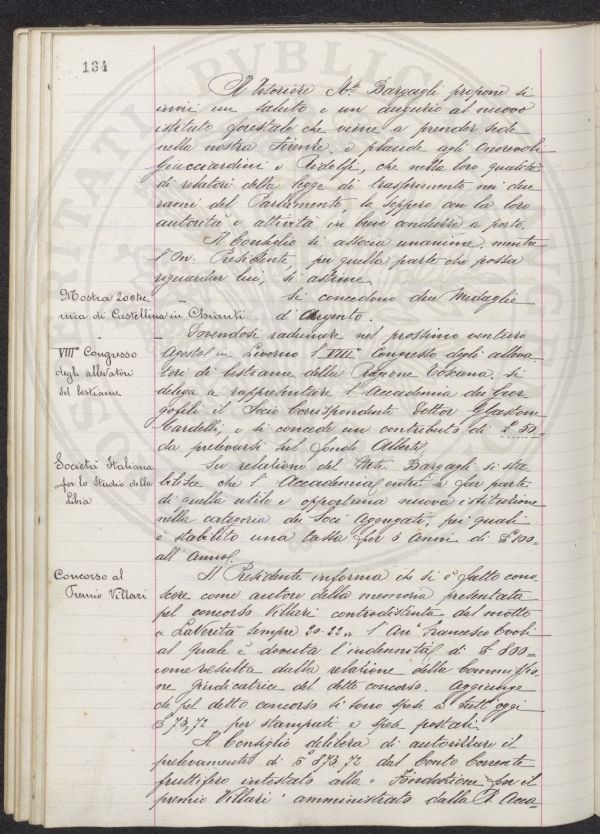 134
Il Tesoriere Mse Bargagli propone si
invii un saluto e un augurio al nuovo
istituto forestale che viene a prender sede
nella nostra Firenze, e plaude agli Onorevoli
Guicciardini e Ridolfi, che nella loro qualità
di relatori della legge di trasferimento nei due
rami del Parlamento, la seppero con la loro
autorità e attività in bene condurre a porto.
Il Consiglio si associa unanime, mentre
l'On. Presidente, per quella parte che possa
riguardar lui, si astiene.
Mostra Zootec
nica di Castellina in Chianti
Si concedono due Medaglie
d'Argento.
VIII° Congresso
degli allevatori
del bestiame
Dovendosi radunare nel prossimo venturo
Agosto in Livorno l'VIII° Congresso degli alleva-
tori di bestiame della Regione Toscana, si
delega a rappresentare l'Accademia dei Geor-
gofili il Socio Corrispondente Dottor Gastone
Cardelli, e si concede un contributo di £ 50,
da prelevarsi sul fondo Alberti.
Società Italiana
per lo Studio della
Libia
Su relazione del Mse Bargagli si sta-
bilisce che l'Accademia entri a far parte
di quella utile e opportuna nuova istituzione
nella categoria dei Soci Aggregati, pei quali
è stabilito una tassa per 3 anni di £ 100=
all'anno.
Concorso al
Premio Villari
Il Presidente informa che si è fatto cono-
scere come autore della memoria presentata
pel concorso Villari contradistinta dal motto
"La Verità sempre 20-22" l' Francesco
al quale è dovuta l'indennità di £ 800=
come resulta dalla relazione della Commissio-
ne giudicatrice del detto concorso. Aggiunge
che pel detto concorso si sono spese a tutt'oggi
£ 73,72 per stampati e spese postali.
Il Consiglio delibera di autorizzare il
prelevamento di £ 873,72 dal Conto Corrente
fruttifero intestato alla "Fondazione per il
premio Villari" amministrato dalla R. Acca-